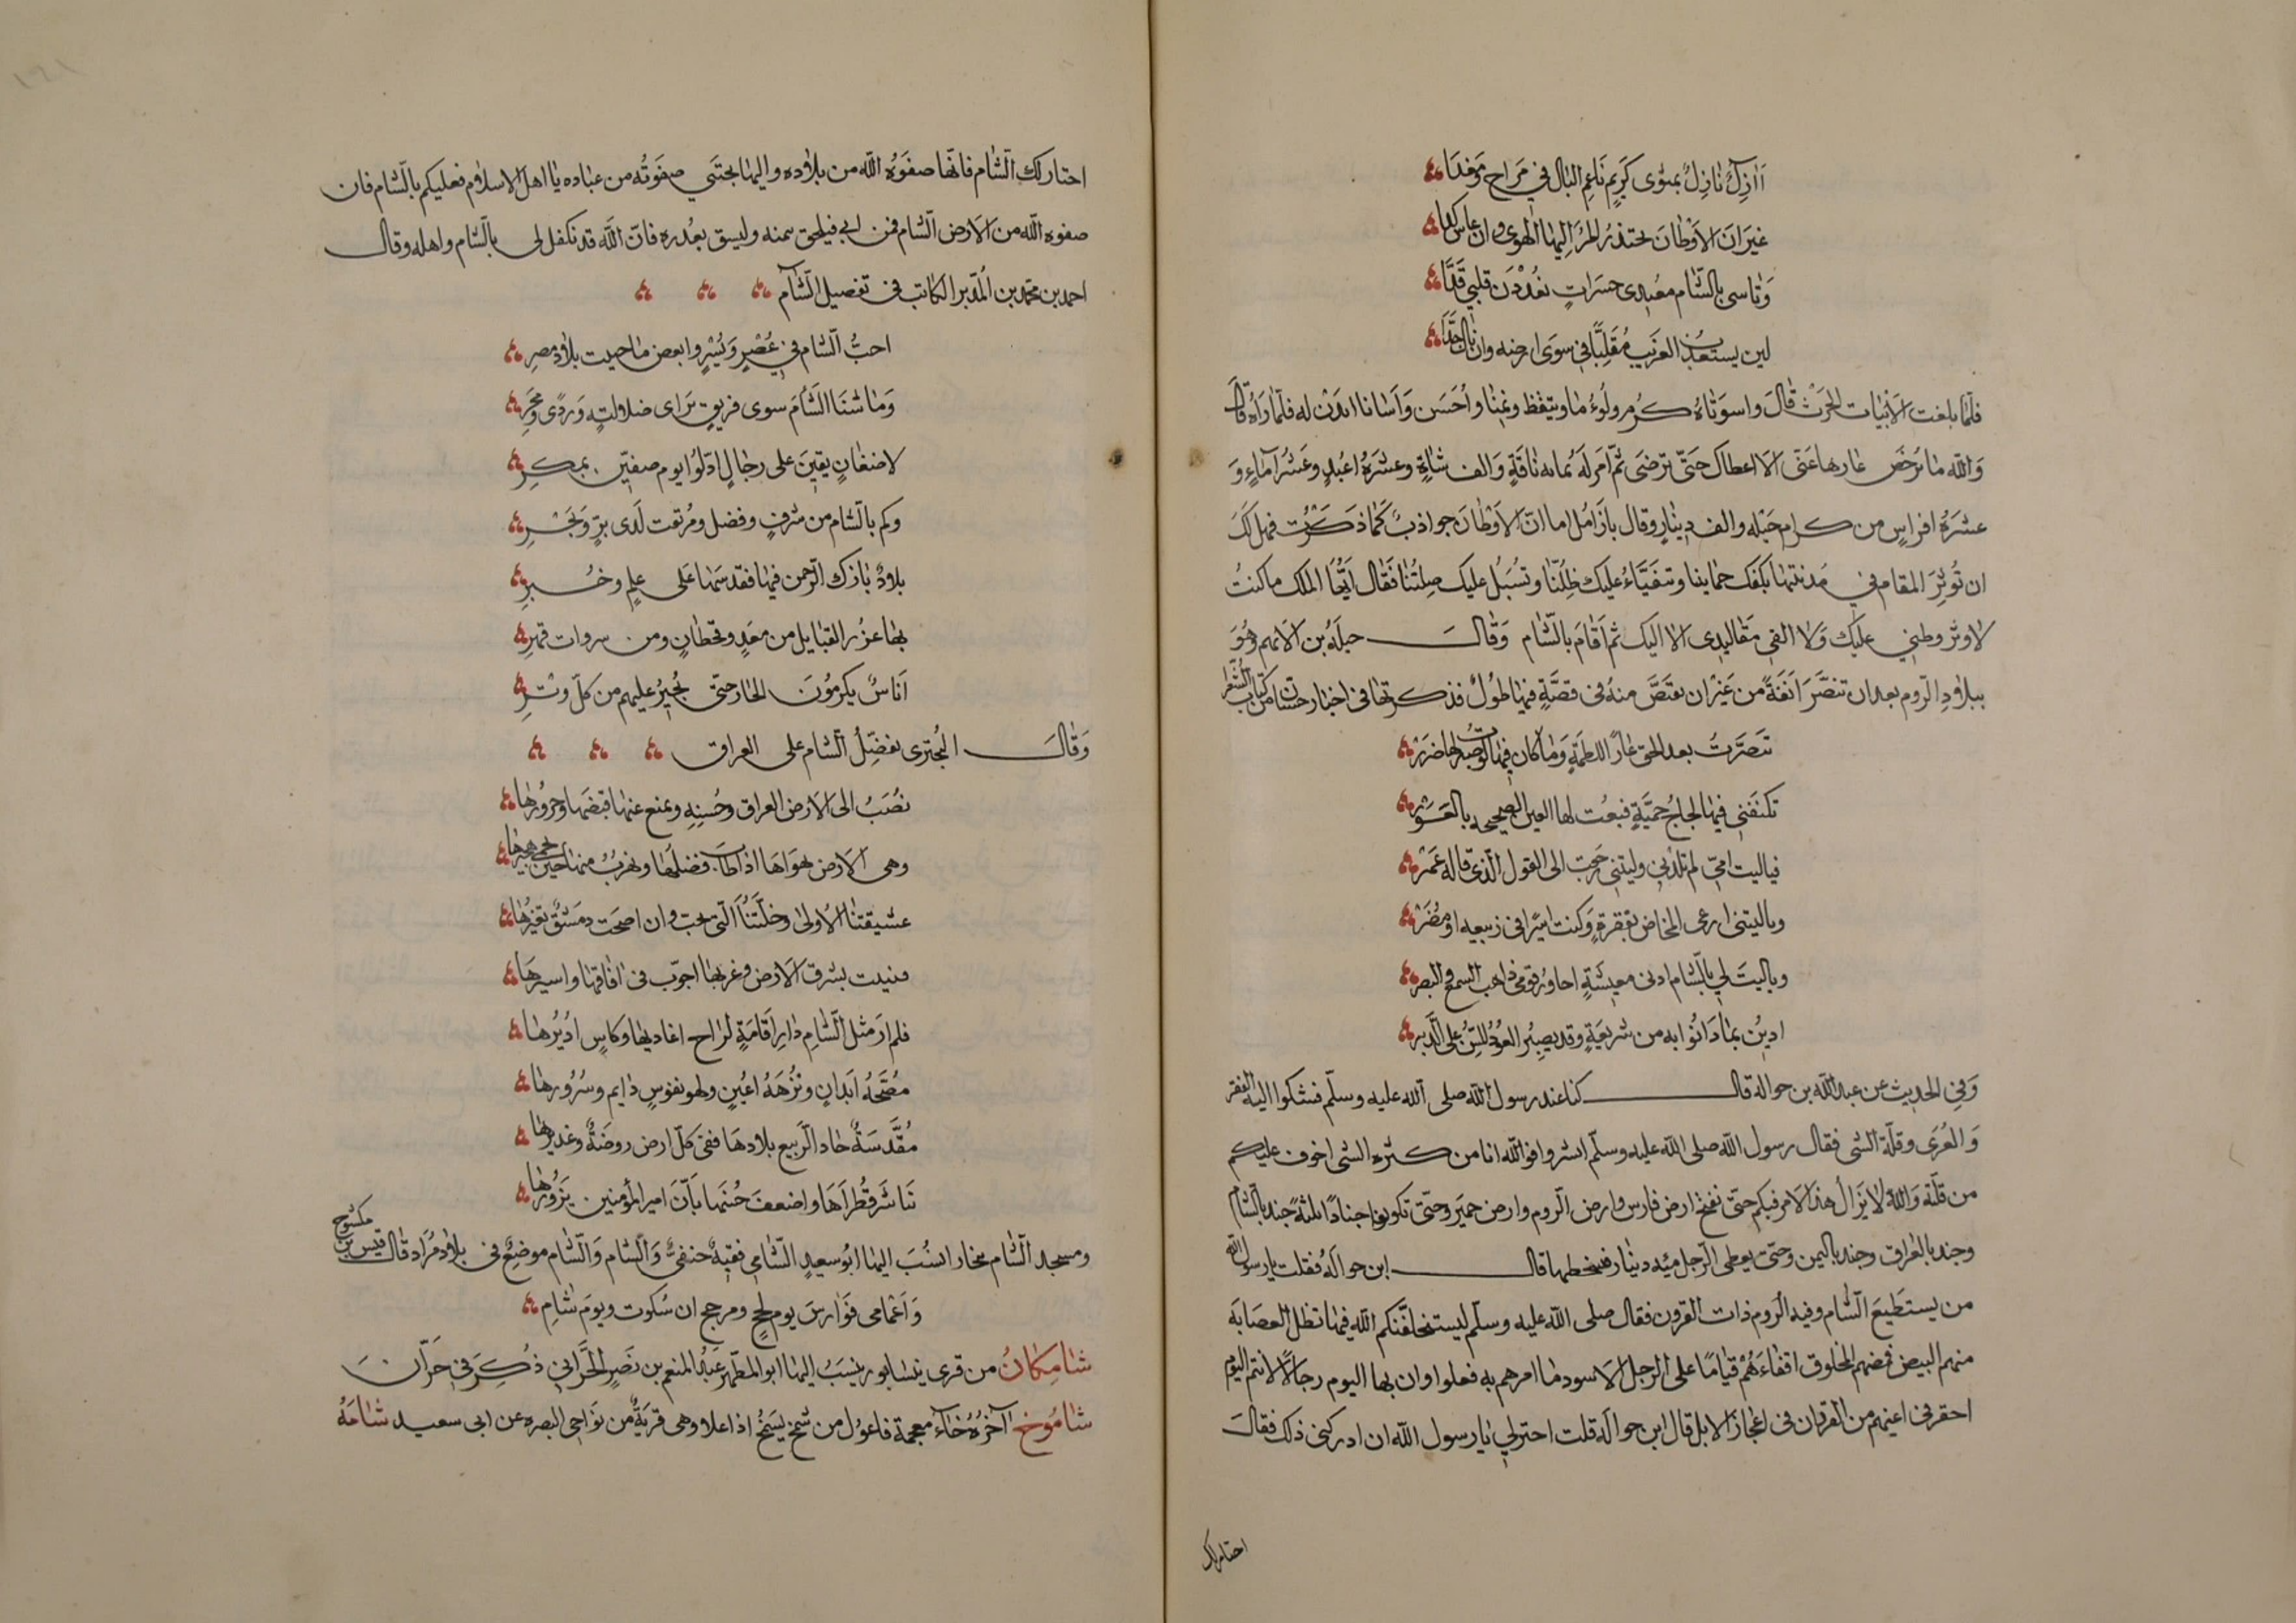 أازل نازل بمثوى كريم ناعم البال في مراح ومغدا
غير ان الاوطان يجتذب المرء اليها الهوى وان عاش كدا
وتاسى بالشام مفيدى حسرات يقددن قلبي قدا
ليس يستعذب الغريب مقاما في سوى ارضه وان نال جدا
فلما بلغت الابيات الحرث قال واسوتاه كرم ولؤم ما ويتيقظ ونمنا واحسن واسانا اىدن له فلما راه قال
والله ما يرخص عارها عنى الا اعطاك حتى ترضى ثم امر له بمايه ناقة والف شاة وعشرة اعبد وعشر آماء و
عشرة افراس من كرام خيله والف دينار وقال يا زامل اما ان الاوطان جواذب كما ذكرت فهل لك
ان تؤثر المقام في مدينتنا يكفك حماينا وتتفياء عليك ظلنا وتسبل عليك صلتنا فقال ايها الملك ما كنت
لاوثر وطني عليك ولا القي مقاليدى الا اليك ثم اقام بالشام وقال جبله بن الايهم وهو
ببلاد الروم بعد ان تنصر انفة من غير ان يقتص منه في قصة فيها طول قد ذكرتها في اخبار حسان من كتاب الشعرا
تنصرت بعد الحق عارا للطمة وما كان فيها لو صبرت لها ضرر
تكنفني فيها لجاج حمية فبعت لها العين الصحيحه بالعور
فياليت امي لم تلدني وليتني رجعت الى القول الذي قاله عمر
وياليتني ارعى المخاض بقفرة وكنت اسيرا في ربيعه او مضر
وياليت لي بالشام ادنى معيشة اجاور قومي ذاهب السمع والبصر
ادين بما دانوا به من شريعة وقد يصبر العود المسن على الدبر
وفي الحديث عن عبد الله بن حواله قال كنا عند رسول الله صلى الله عليه وسلم فشكوا اليه الفقر
والعرى وقلة الشى فقال رسول الله صلى الله عليه وسلم ابشروا فوالله انا من كثره الشى اخوف عليكم
من قلته والله لا يزال هذا الامر فيكم حتى تفتح ارض فارس وارض الروم وارض حمير وحتى تكونوا اجنادا ثلثة جند بالشام
وجند بالعراق وجند باليمن وحتى يعطى الرجل مئه دينار فيسخطها قال ابن حواله فقلت يا رسول الله
من يستطيع الشام وفيه الروم ذات القرون فقال صلى الله عليه وسلم ليستخلفنكم الله فيها تظل العصابه
منهم البيض قمصهم المحلوق اقفاءهم قياما على الرجل الاسود ما امرهم به فعلوا وان بها اليوم رجالا لانتم اليوم
احقر في اعينهم من القردان في اعجاز الابل قال ابن حواله قلت اختر لي يا رسول الله ان ادركني ذلك فقال
اختار لك
اختار لك الشام فانها صفوة الله من بلاده واليها يجتبي صفوته من عباده يا اهل الاسلام فعليكم بالشام فان
صفوه الله من الارض الشام فمن ابى فيلحق بيمنه وليسق بغدره فان الله قد تكفل لى بالشام واهله وقال
احمد بن محمد بن المدبر الكاتب في تفضيل الشام
احب الشام في عسر ويسر وابغض ما حييت بلاد مصر
وما شنا الشام سوى فريق براى ضلالة وردى وهجر
لاضغان يقين على رجال اذلوا يوم صفين بمكر
وكم بالشام من شرف وفضل ومرتقب لدى بر وبحر
بلاد بارك الرحمن فيها فقدسها على علم وخبر
بها غرر القبايل من معد وقحطان ومن سروات فهر
اناس يكرمون الجار حتى يجير عليهم من كل وتر
وقال البحترى يفضل الشام على العراق
نصب الى الارض العراق وحسنه ويمنع عنها قيضها وحرورها
وهى الارض نهواها اذا طاب فضلها ونهرب منها حين يحمى هجيرها
عشيقتنا الاولى وخلتنا التى نحب وان اضحت دمشق تغيرها
عنيت بشرق الارض وغربها اجوب فى آفاقها واسيرها
فلم ار مثل الشام دار اقامة لراح اغاديها وكاس اديرها
مصحه ابدان ونزهة اعين ولهو نفوس دايم وسرورها
مقدسة جاد الربيع بلادها ففى كل ارض روضة وغديرها
تباشر قطراها واضعف حسنها بان امير المؤمنين يزورها
ومسجد الشام ببخارا نسب اليها ابو سعيد الشامي فقيه حنفي والشام والشام موضع في بلاد مراد قال قيس بن مكشوح
واعمامى فوارس يوم لحج ومرجح ان شكوت ويوم شام
شامكان من قرى نيسابور ينسب اليها ابو المطهر عبد المنعم بن نصر الحراني ذكر في حران
شاموخ آخره خاء معجمة فاعول من شمخ يشمخ اذا علا وهى قرية من نواحى البصره عن ابى سعيد شامة